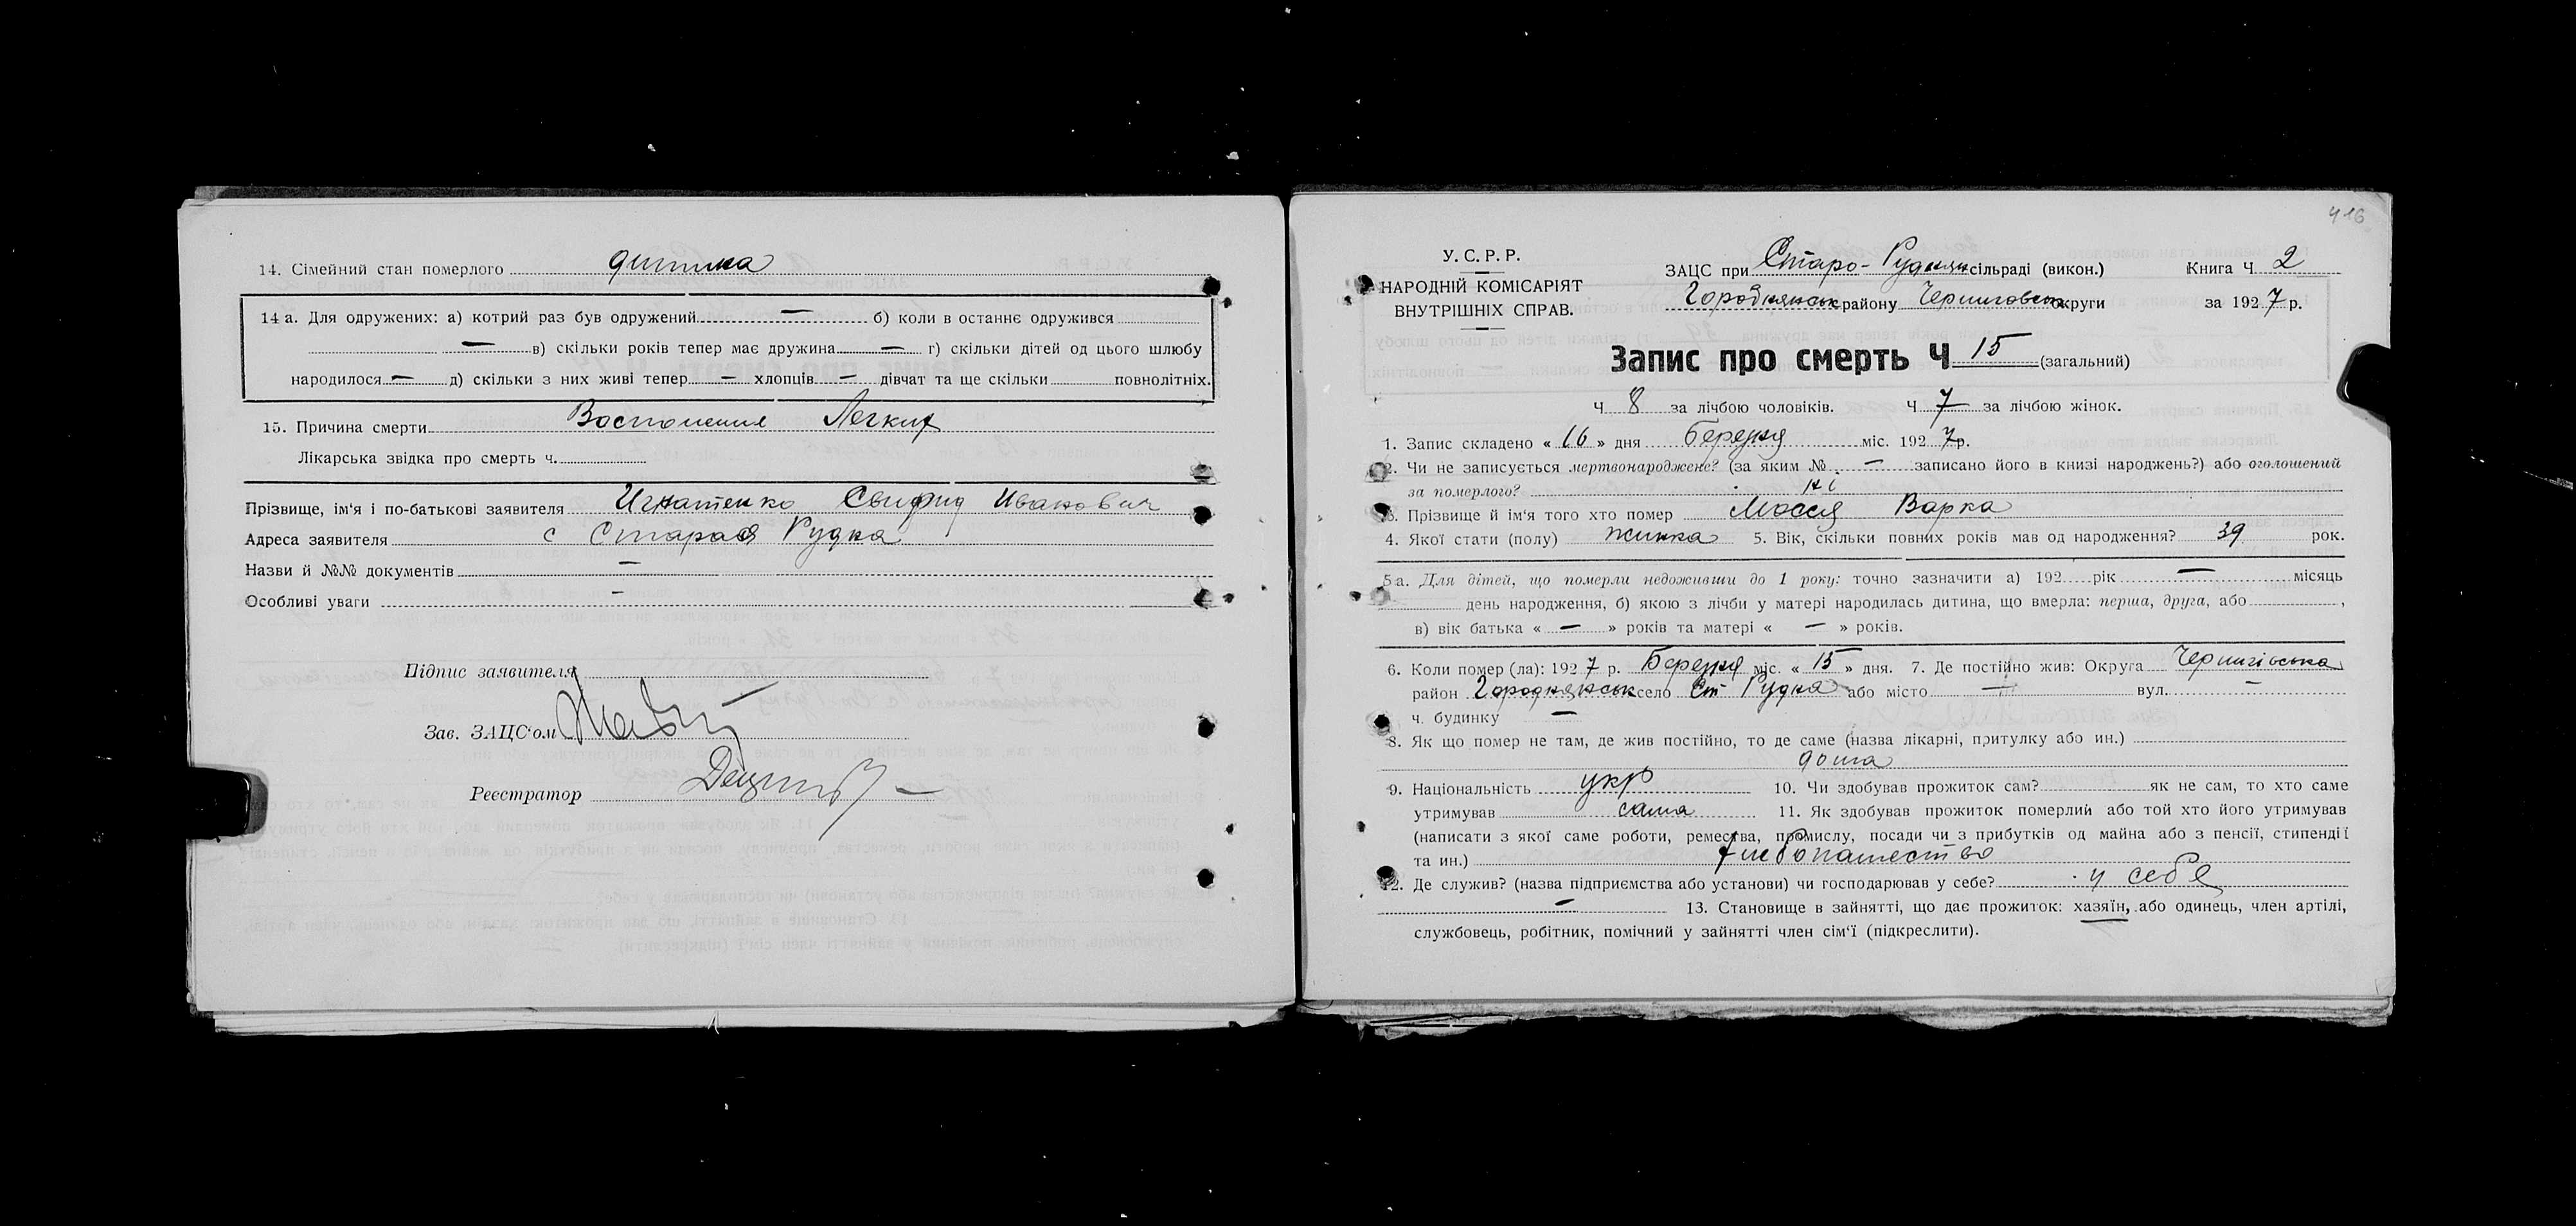 14. Сімейний стан померлого дитина
14 а. Для одружених: а) котрий раз був одружений — б) коли в останнє одружився
— в) скільки років тепер має дружина — г) скільки дітей од цього шлюбу
народилося — д) скільки з них живі тепер — хлопців — дівчат та ще скільки повнолітніх.
15. Причина смерти Легких
Лікарська звідка про смерть ч.
Прізвище, ім'я і по-батькові заявителя Игнатенко Иванович
Адреса заявителя с Старая Рудка
Назви й №№ документів —
Особливі уваги —
Підпис заявителя
Зав. ЗАЦС'ом
Реєстратор
416
У. С. Р. Р.
НАРОДНІЙ КОМІСАРІЯТ
ВНУТРІШНІХ СПРАВ.
ЗАЦС при Старо-Руднян сільраді (викон.) Книга Ч 2
Городнянськ району Черниговськ округи за 1927 р.
Запис про смерть Ч 15 (загальний)
Ч 8 за лічбою чоловіків. Ч 7 за лічбою жінок.
1. Запис складено « 16 » дня Березня міс. 1927 р.
2. Чи не записується мертвонароджене? (за яким № — записано його в книзі народжень?) або оголошений
за померлого? ні
3. Прізвище й ім'я того хто помер Варка
4. Якої стати (полу) жинка 5. Вік, скільки повних років мав од народження? 39 рок.
5а. Для дітей, що померли недоживши до 1 року: точно зазначити а) 192 рік — місяць
день народження, б) якою з лічби у матері народилась дитина, що вмерла: перша, друга, або ,
в) вік батька « — » років та матері « — » років.
6. Коли помер (ла): 1927 р. Березня міс. « 15 » дня. 7. Де постійно жив: Округа Чернигівська
район Городнянськ село Ст Рудка або місто — вул. —
ч. будинку —
8. Як що помер не там, де жив постійно, то де саме (назва лікарні, притулку або ин.)
дома
9. Національність укр 10. Чи здобував прожиток сам? як не сам, то хто саме
утримував сама 11. Як здобував прожиток померлий або той хто його утримував
(написати з якої саме роботи, ремества, промислу, посади чи з прибутків од майна або з пенсії, стипендії
та ин.) хлебопашество
12. Де служив? (назва підприємства або установи) чи господарював у себе? у себя
— 13. Становище в зайнятті, що дає прожиток: хазяїн, або одинець, член артілі,
службовець, робітник, помічний у зайнятті член сім'ї (підкреслити).